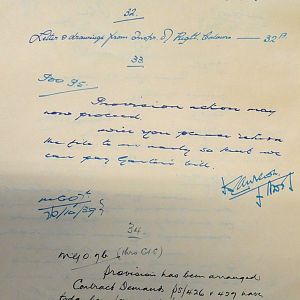 32.
Letter & drawings from Inspr. of Fight. Colours — 32A
33
Provision action may
now proceed.
Will you please return
the file to me early so that we
can pay Garter's bill.
20/10/39
34.
(thro' C.I.C)
Provision has been arranged
Contract Demands PS/426 & 427 have